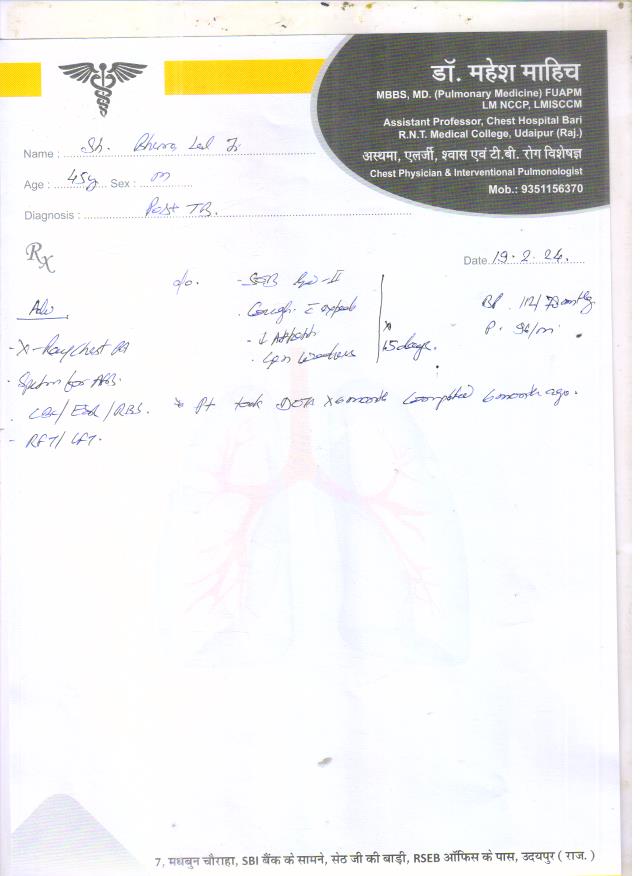 डॉ. महेश माहिच
MBBS, MD. (Pulmonary Medicine) FUAPM
LM NCCP, LMISCCM
Assistant Professor, Chest Hospital Bari
R.N.T. Medical College, Udaipur (Raj.)
अस्थमा, एलर्जी, श्वास एवं टी.बी. रोग विशेषज्ञ
Chest Physician & Interventional Pulmonologist
Mob.: 9351156370
Name : Sh. Lal Ji
Age : 45y Sex : m
Diagnosis : Post TB.
Rx
Date 19.2.24.
c/o. - SOB Gr-II
Adv
. Cough c expect
BP. 112/73 mmHg
- ↓ Appetite
P. 96/m
x 15 days.
- X-Ray Chest PA
. Gen Weakness
. Sputum for AFB.
. CBC/ESR/RBS. * Pt took DOTS x 6 month Completed 6 month ago.
- RFT/LFT.
7, मधुबन चौराहा, SBI बैंक के सामने, सेठ जी की बाड़ी, RSEB ऑफिस के पास, उदयपुर ( राज. )